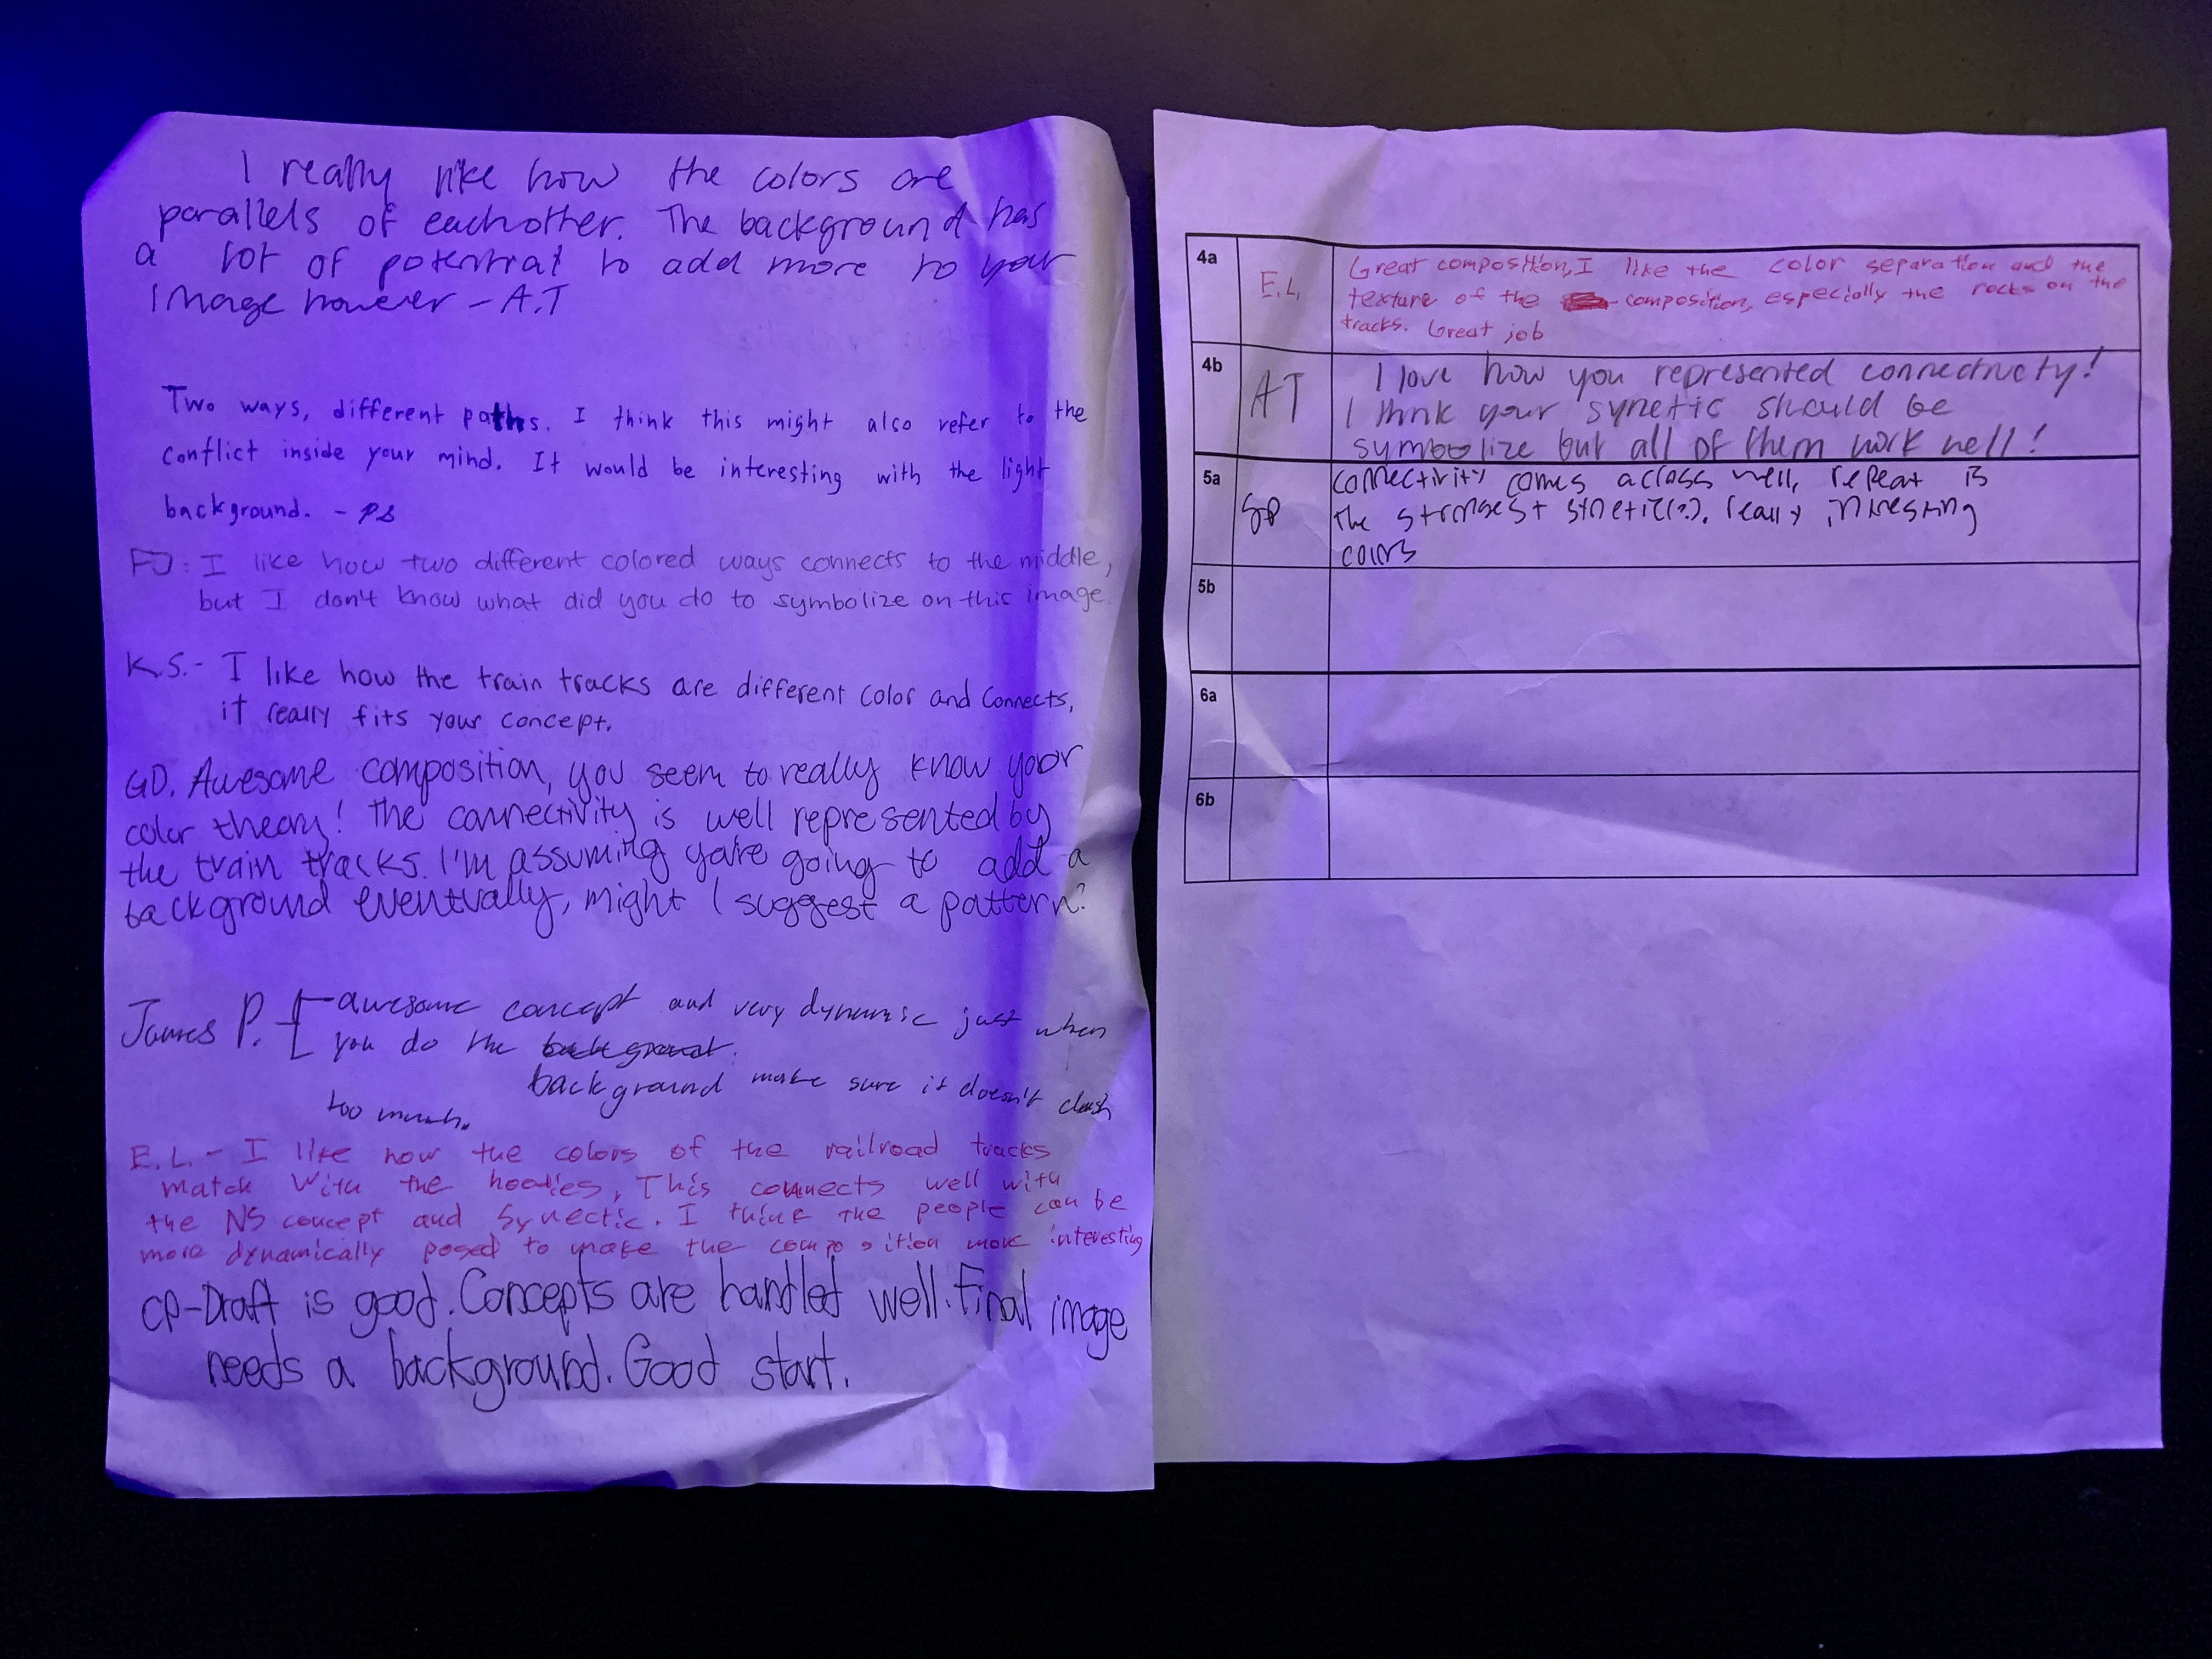 I really like how the colors are
parallels of eachother. The background has
a lot of potential to add more to your
image however - A.T
Two ways, different paths. I think this might also refer to the
conflict inside your mind. It would be interesting with the light
background. - PS
FJ: I like how two different colored ways connects to the middle,
but I don't know what did you do to symbolize on this image.
K.S.- I like how the train tracks are different color and connects,
it really fits your concept.
GD. Awesome composition, you seem to really know your
color theory! The connectivity is well represented by
the train tracks. I'm assuming you're going to add a
background eventually, might I suggest a pattern?
James P. awesome concept and very dynamic just when
you do the
background make sure it doesn't clash
too much.
E.L.- I like how the colors of the railroad tracks
match with the hoodies, This connects well with
the NS concept and Synectic. I think the people can be
more dynamically posed to make the composition more interesting
CP-Draft is good. Concepts are handled well. Final image
needs a background. Good start.
4a E.L. Great composition, I like the color separation and the
texture of the composition, especially the rocks on the
tracks. Great job
4b AT I love how you represented connectivity!
I think your synetic should be
symbolize but all of them work well!
5a connectivity comes across well, repeat is
the strongest synetic(?). really intresting
colors
5b
6a
6b